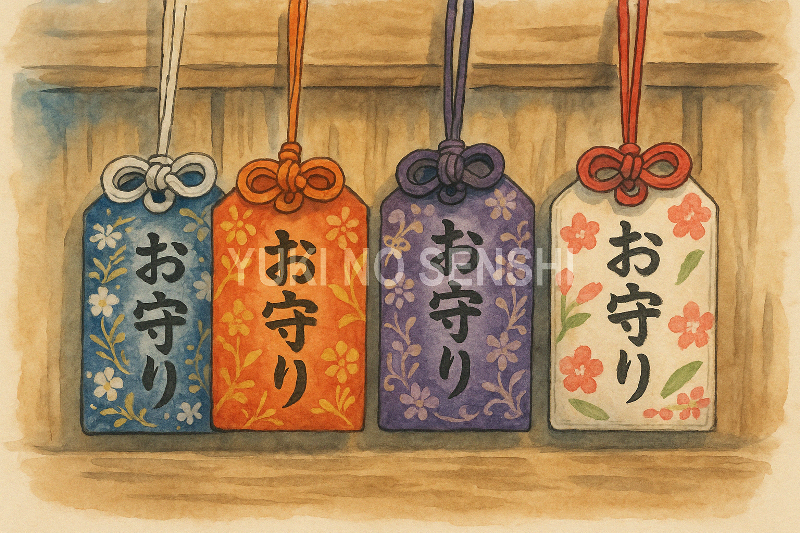 お守り
お守り
お守り
お守り
YUKI NO SENSHI